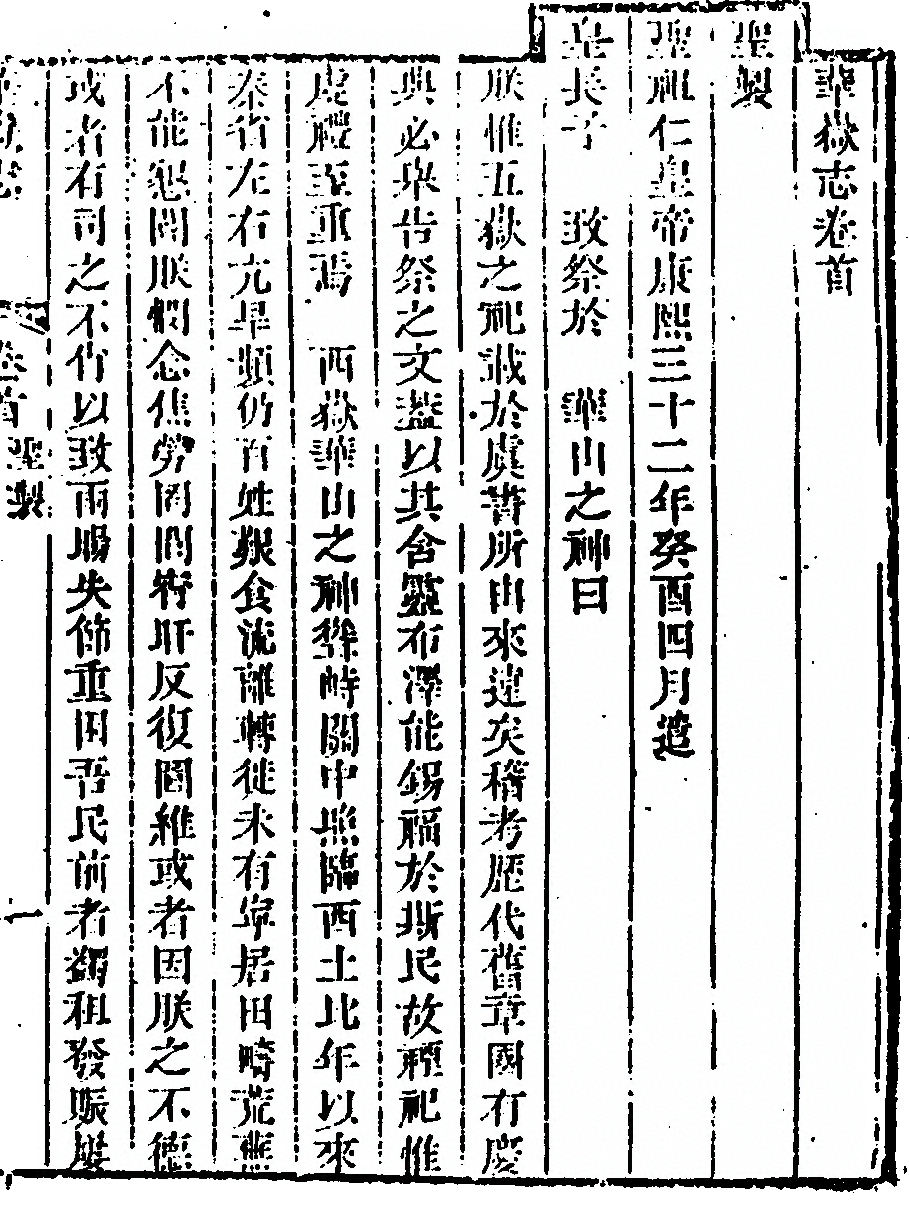 華嶽志卷首
聖製
聖祖仁皇帝康熙三十二年癸酉四月遣
皇長子 致祭於 華山之神曰
朕惟五嶽之祀載於虞書所由來遠矣稽考歷代舊章國有慶
典必舉告祭之文葢以其含靈布澤能錫福於斯民故禋祀惟
虔禮至重焉 西嶽華山之神發峙關中照臨西土比年以來
秦省左右亢旱頻仍百姓艱食流離轉徙未有寧居田疇荒蕪
不能墾闢朕憫念焦勞閭閻宵旰反復圖維或者因朕之不德
或者有司之不竹以致雨暘失節重困吾民前者蠲租發賑屢
卷首 聖製
一